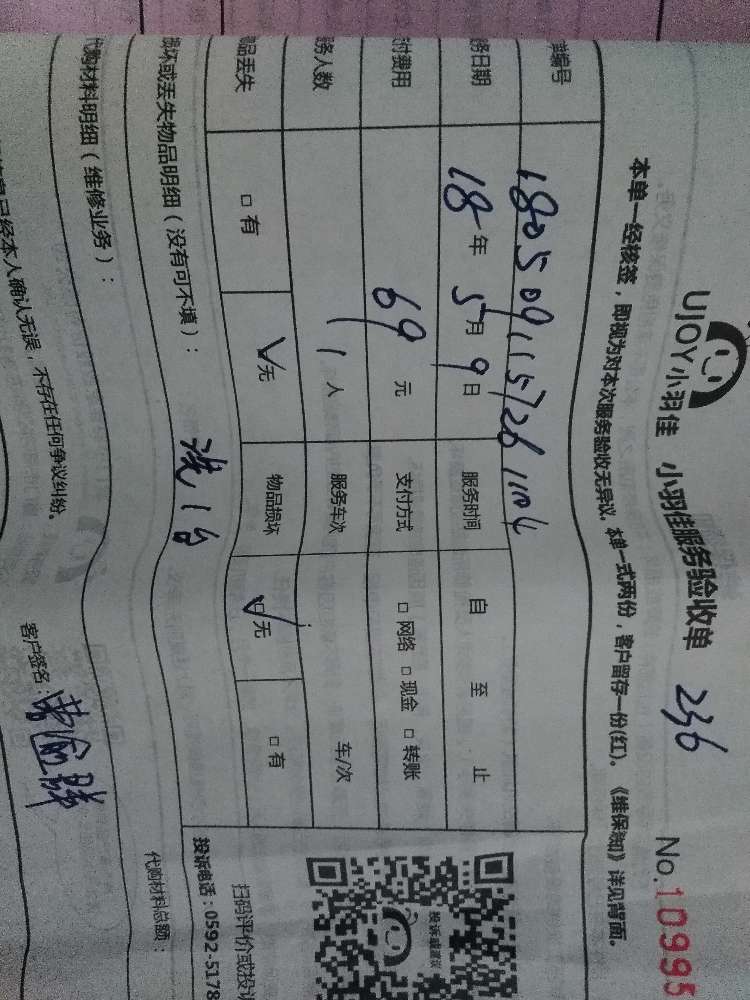 UJOY小羽佳 小羽佳服务验收单 236 No.10995
本单一经核签，即视为对本次服务验收无异议。本单一式两份，客户留存一份(红)。《维保须知》详见背面。
单编号 1805091157261104
务日期 18年 5月 9日 服务时间 自 至 止
付费用 69 元 支付方式 □ 网络 □ 现金 □ 转账
务人数 1 人 服务车次 车/次
品丢失 □ 有 √无 物品损坏 √□无 □ 有
损坏或丢失物品明细（没有可不填）： 洗1台
代购材料明细（维修业务）：
代购材料总额：
已经本人确认无误，不存在任何争议纠纷。
客户签名：
投诉或建议
扫码评价或投诉
投诉电话：0592-5178